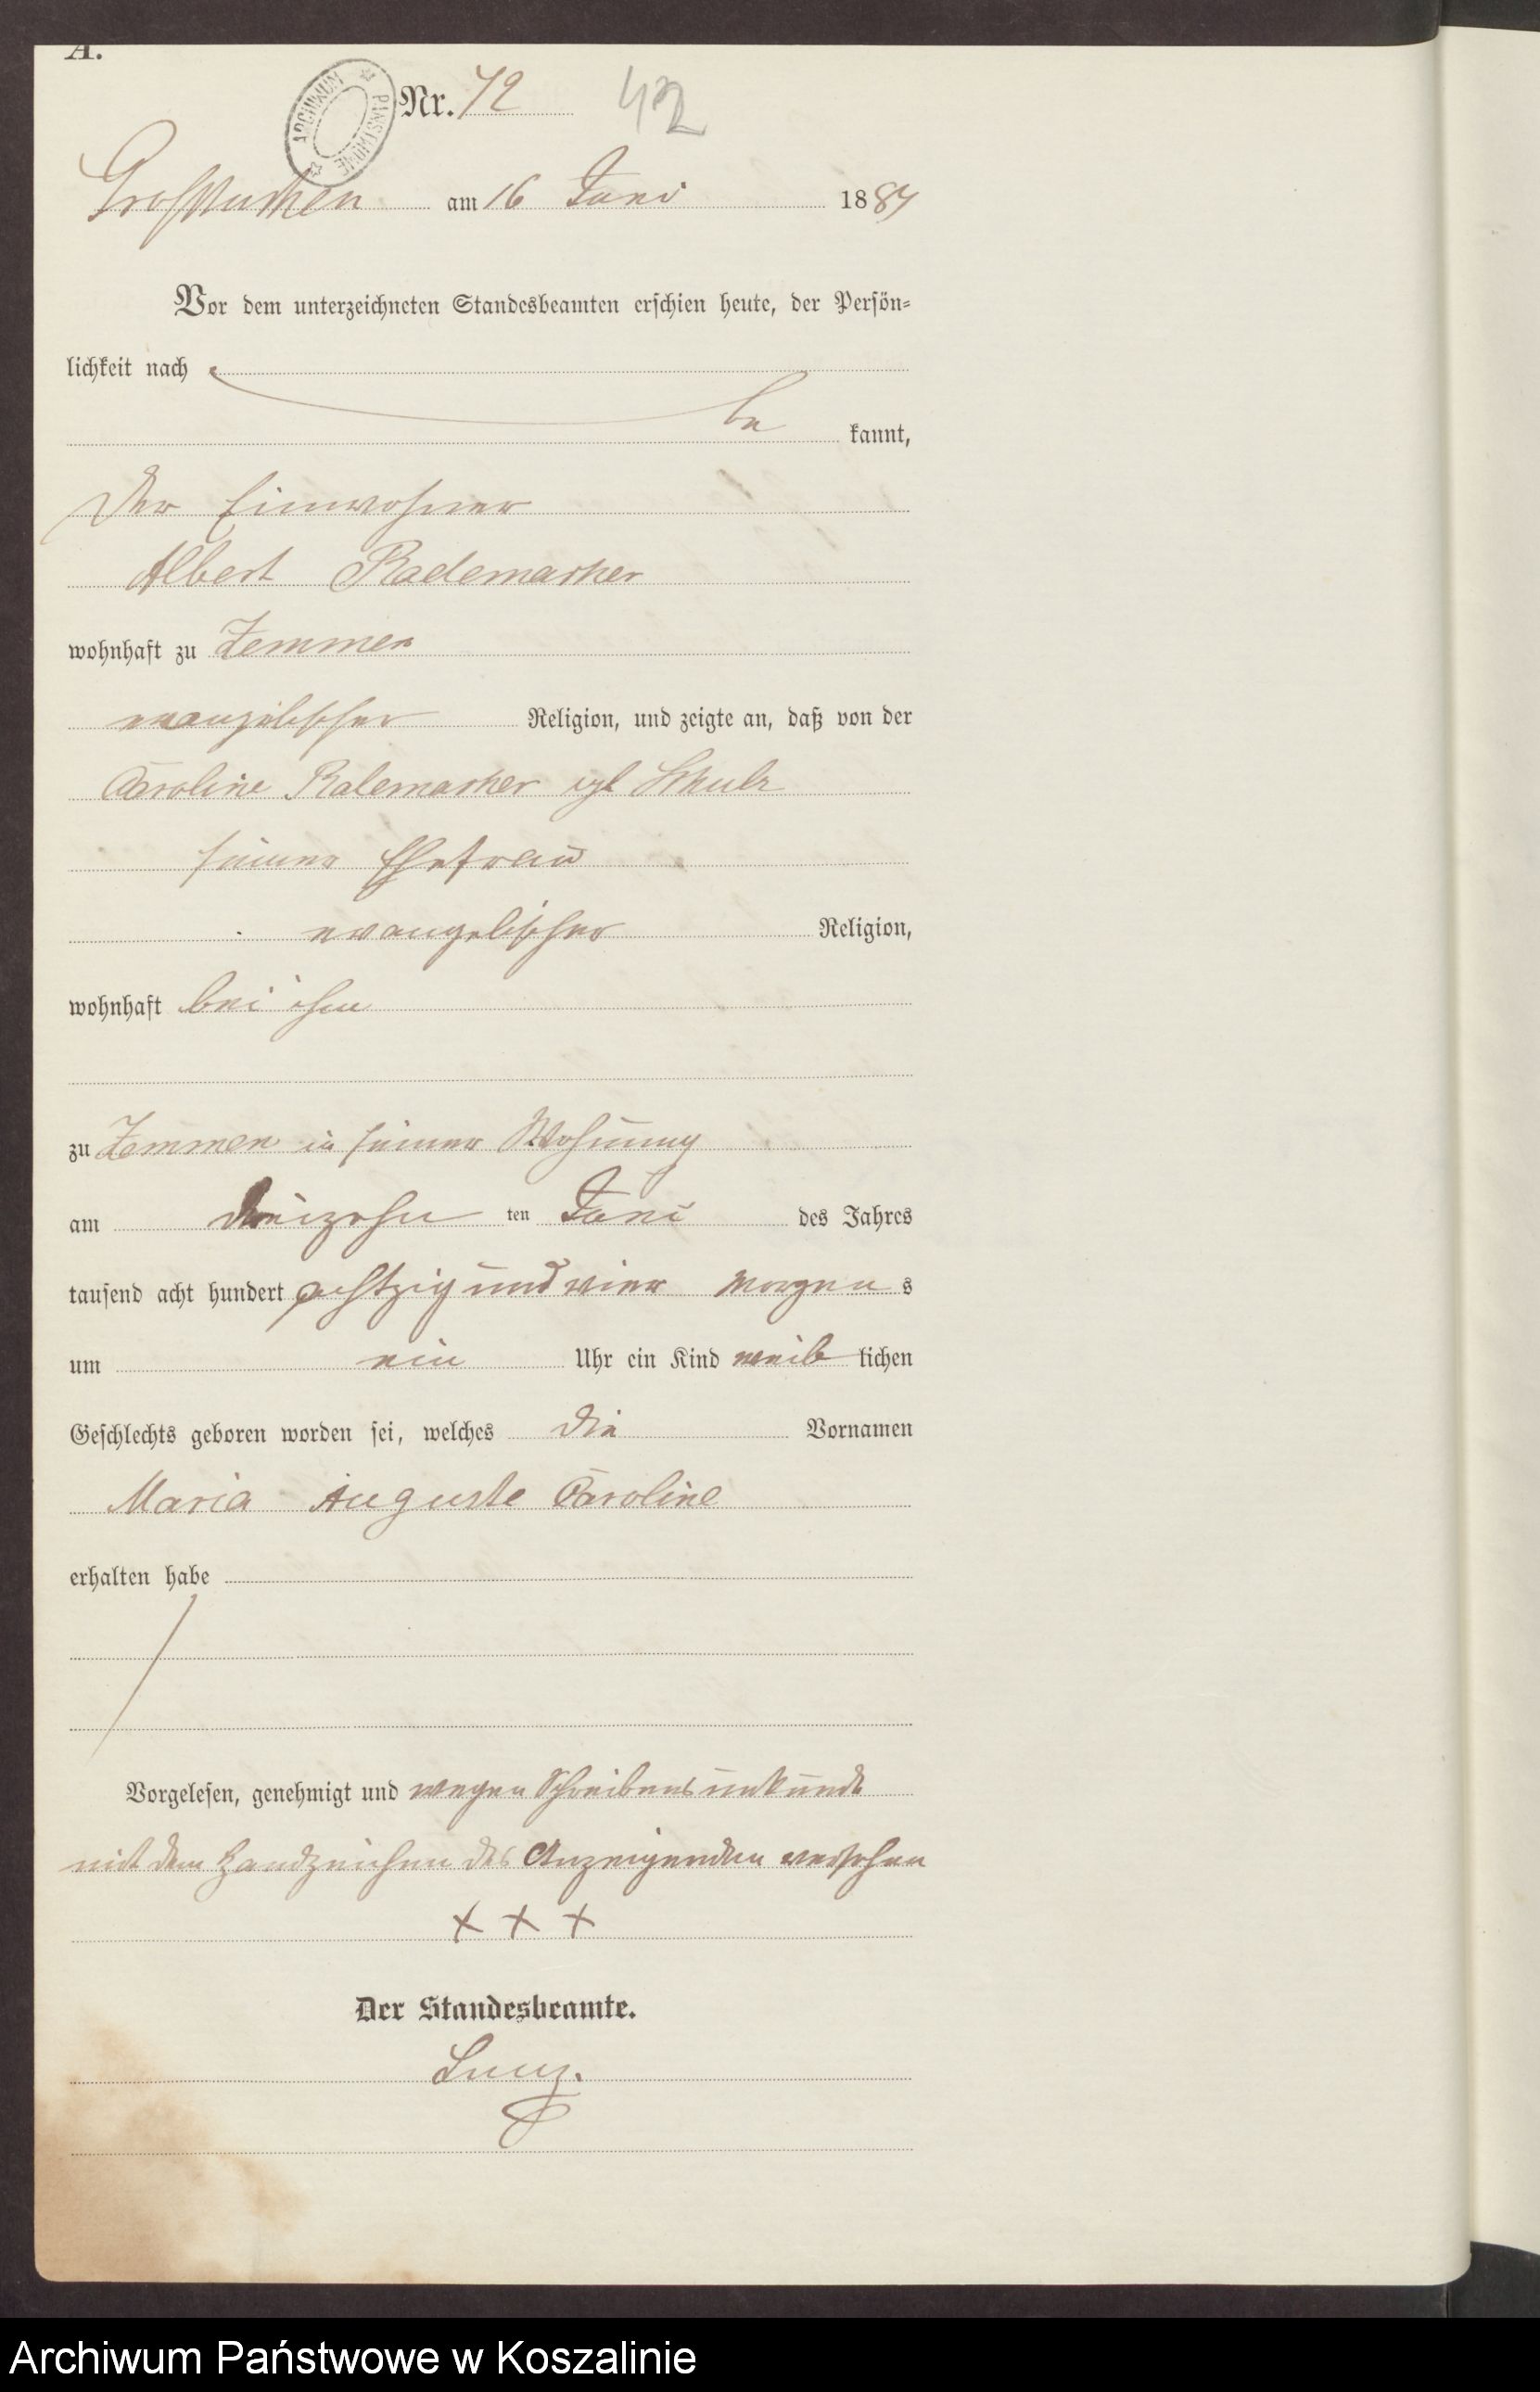 A.
Nr. 72 42
ARCHIWUM PAŃSTWOWE
Großtuchen am 16 Juni 1884
Vor dem unterzeichneten Standesbeamten erschien heute, der Persön-
lichkeit nach
be kannt,
der Einwohner
Albert Rademacher
wohnhaft zu Zemmen
evangelischer Religion, und zeigte an, daß von der
Caroline Rademacher Schulz
seiner Ehefrau
evangelischer Religion,
wohnhaft bei ihm
zu Zemmen in seiner Wohnung
am dreizehn ten Juni des Jahres
tausend acht hundert achtzig und vier Morgen s
um ein Uhr ein Kind weib lichen
Geschlechts geboren worden sei, welches die Vornamen
Maria Auguste Caroline
erhalten habe
Vorgelesen, genehmigt und wegen Schreibensunkunde
mit dem Handzeichen des Anzeigenden versehen
+ + +
Der Standesbeamte.
Archiwum Państwowe w Koszalinie